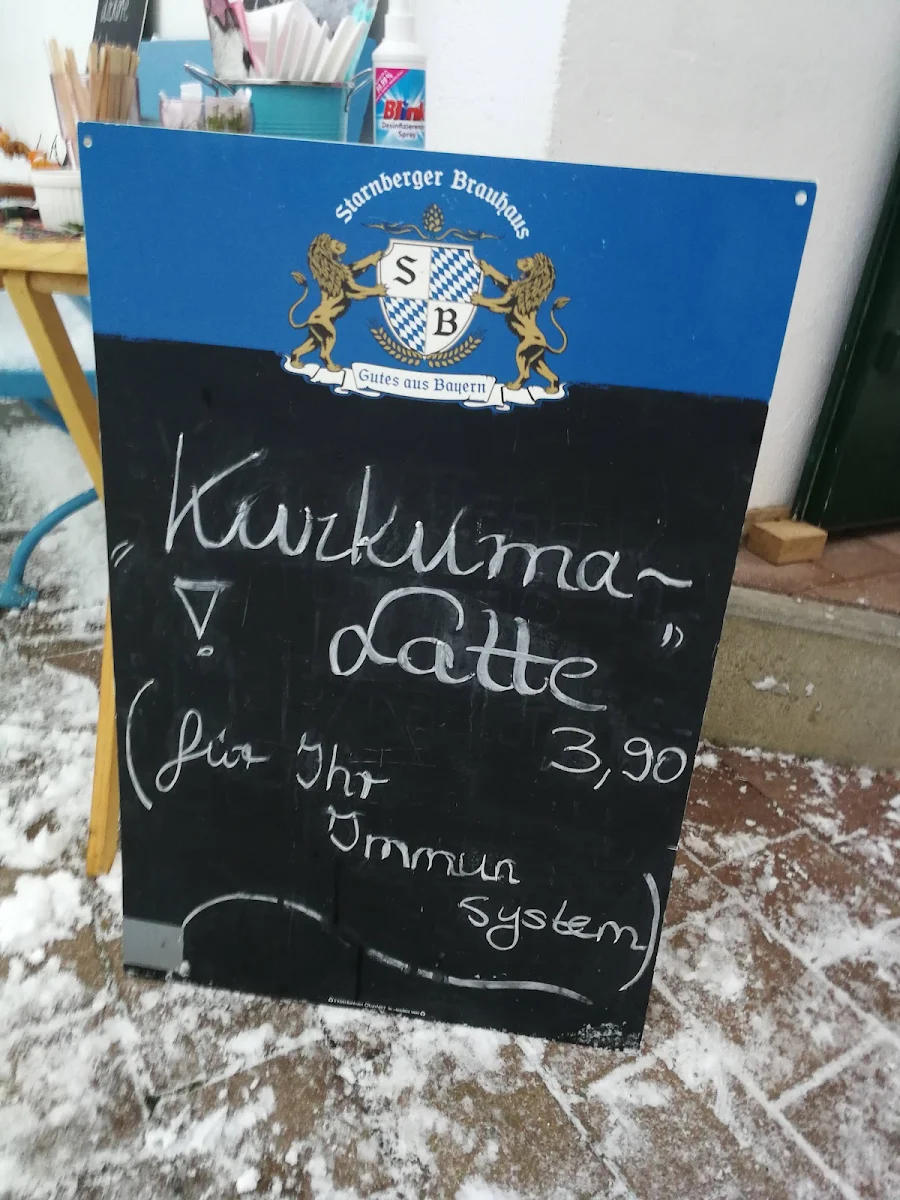 Blink
Desinfizierendes
Spray
Starnberger Brauhaus
S
B
Gutes aus Bayern
„Kurkuma-
! Latte"
3,90
(für Ihr
Immun
System)